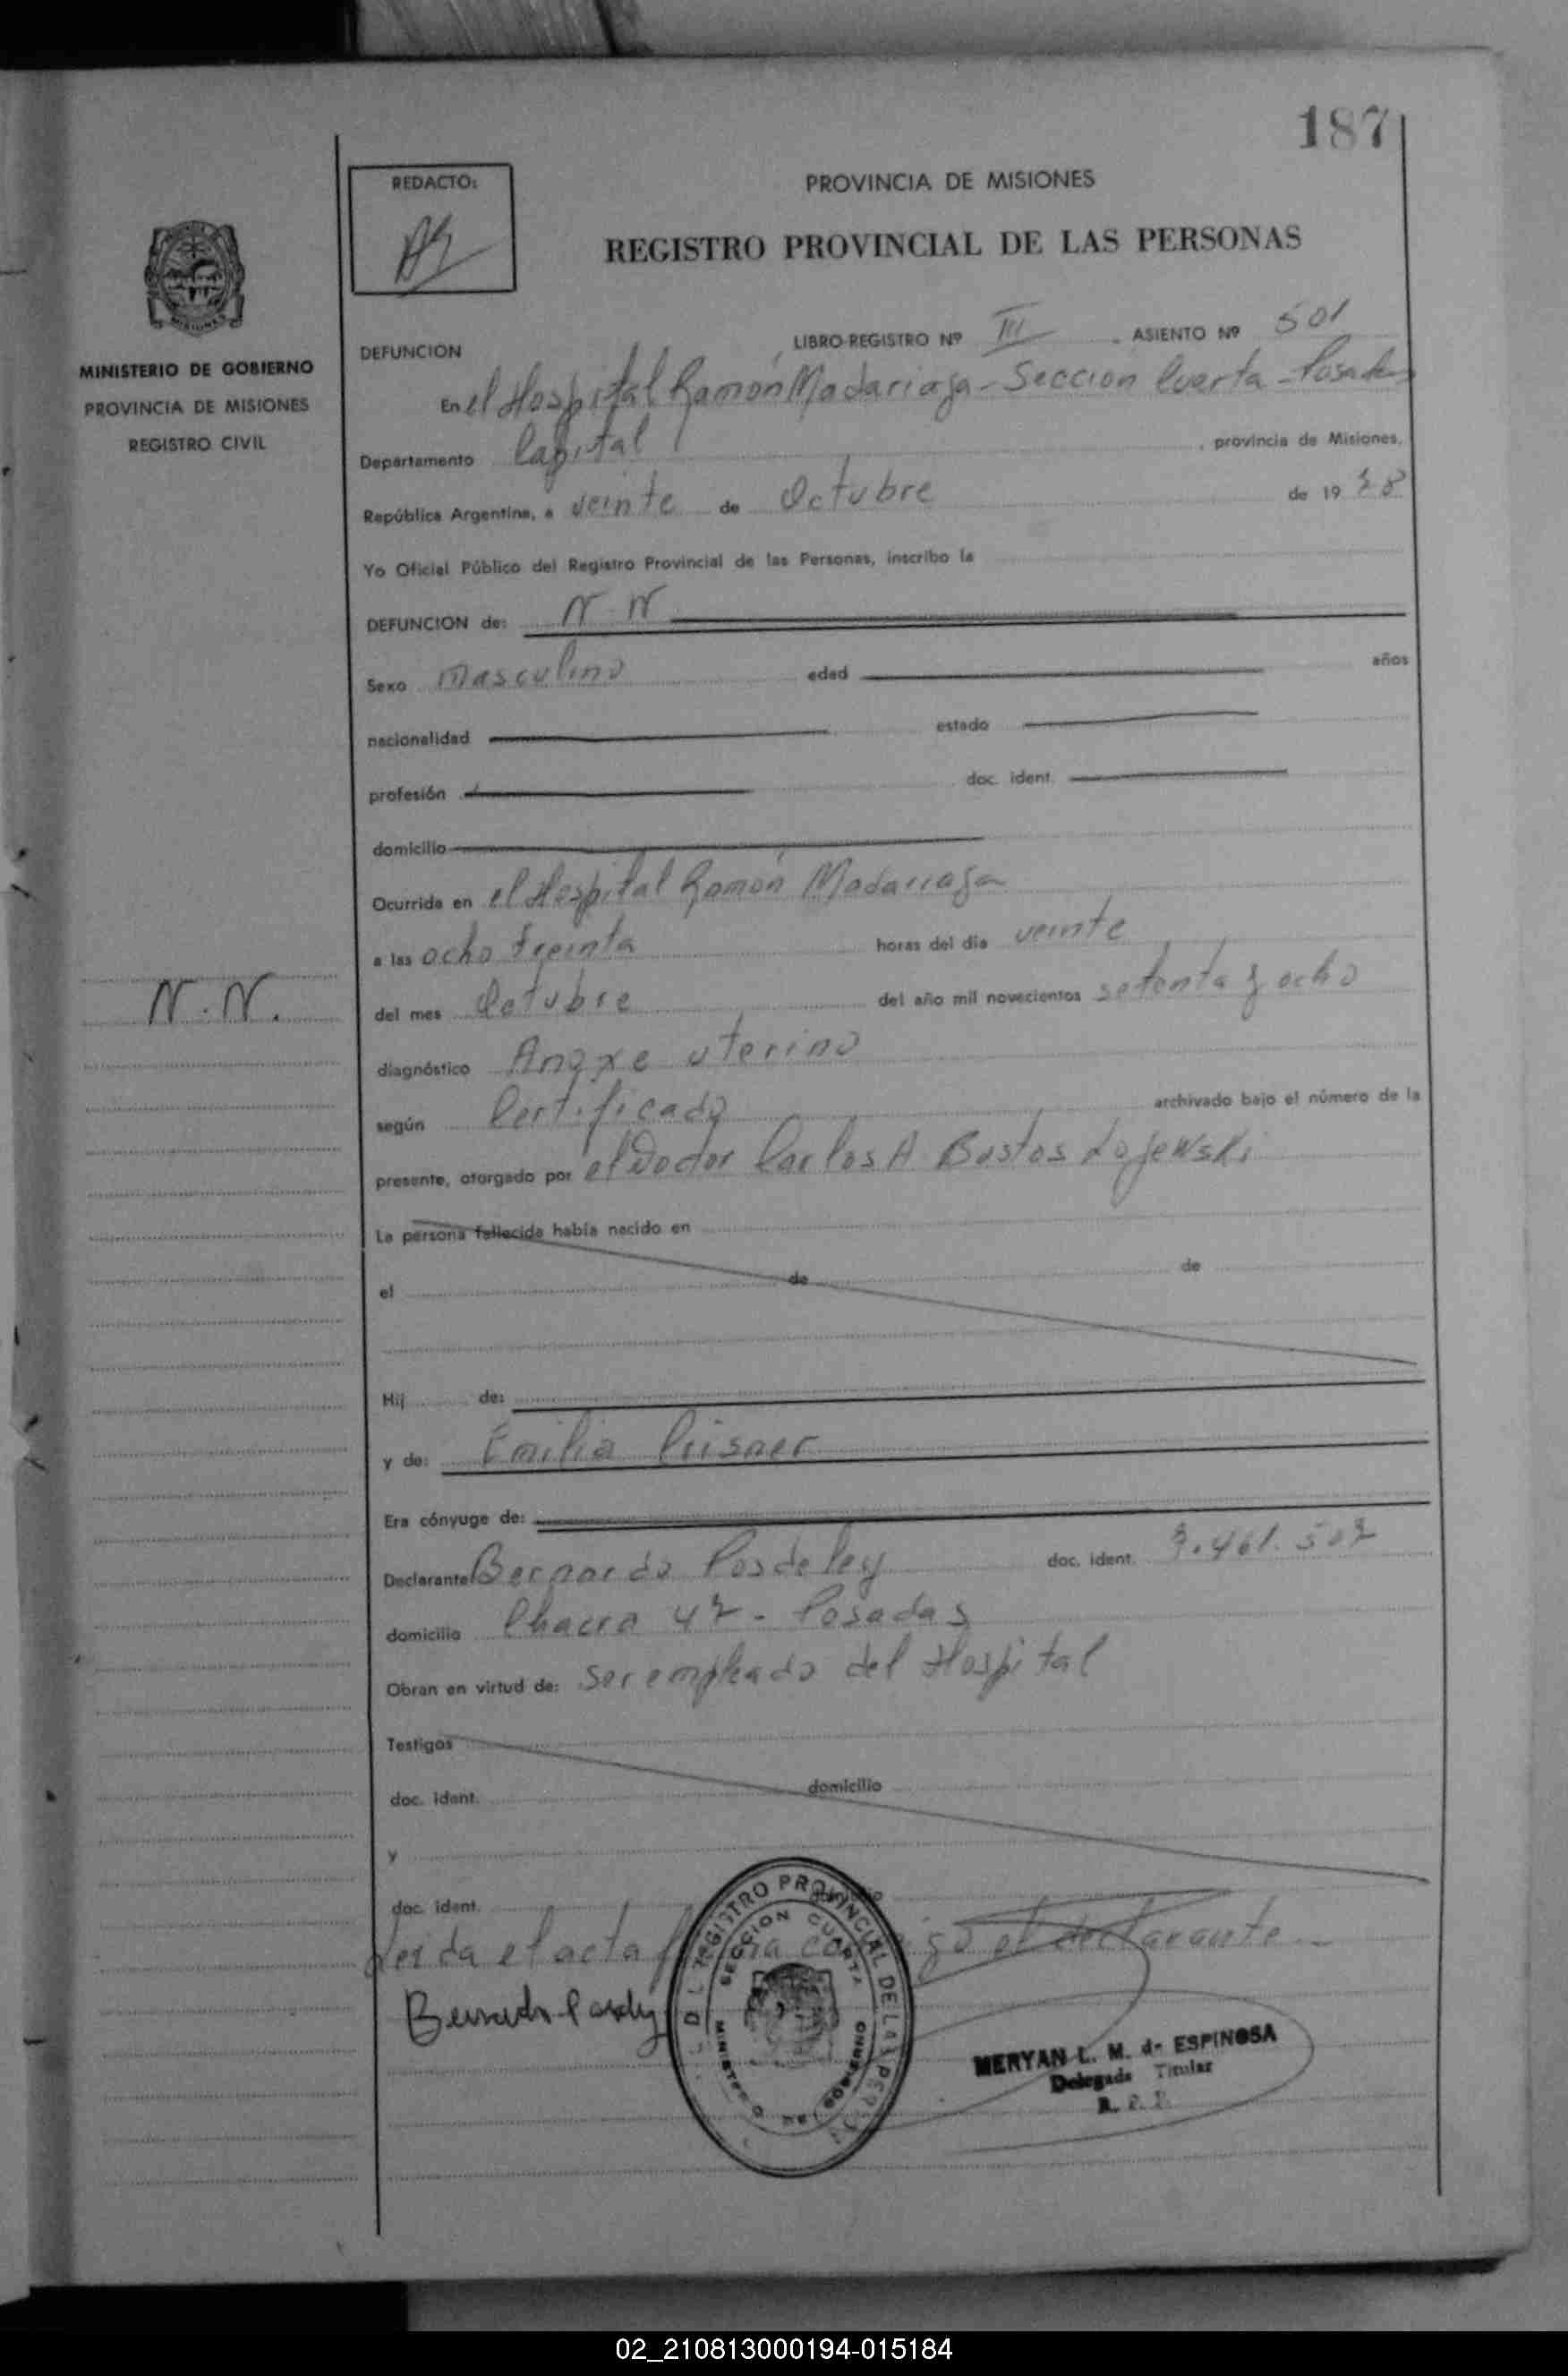 187
REDACTO:
PROVINCIA DE MISIONES
REGISTRO PROVINCIAL DE LAS PERSONAS
MINISTERIO DE GOBIERNO
PROVINCIA DE MISIONES
REGISTRO CIVIL
DEFUNCION
LIBRO-REGISTRO Nº III . ASIENTO Nº 501
En el Hospital Ramón Madariaga - Sección Cuarta - Posadas
Departamento Capital , provincia de Misiones,
República Argentina, a veinte de Octubre de 19 78
Yo Oficial Público del Registro Provincial de las Personas, inscribo la
DEFUNCION de: N. N
Sexo masculino edad años
nacionalidad estado
profesión doc. ident.
domicilio
Ocurrida en el Hospital Ramón Madariaga
a las ocho treinta horas del día veinte
del mes Octubre del año mil novecientos setenta y ocho
N. N.
diagnóstico uterino
según Certificado archivado bajo el número de la
presente, otorgado por el Doctor Carlos A Bustos Lojewski
La persona fallecida había nacido en
el de de
Hij de:
y de: Emilia Prisner
Era cónyuge de:
Declarante Bernardo doc. ident. 7.461.507
domicilio Chacra 47 - Posadas
Obran en virtud de: ser empleado del Hospital
Testigos
doc. ident. domicilio
y
doc. ident. domicilio
Leida el acta firma conmigo el declarante
REGISTRO PROVINCIAL DE LAS PERSONAS
SECCION CUARTA
MINISTERIO DE GOBIERNO
MERYAN L. M. de ESPINOSA
Delegada Titular
R. P. P.
02_210813000194-015184